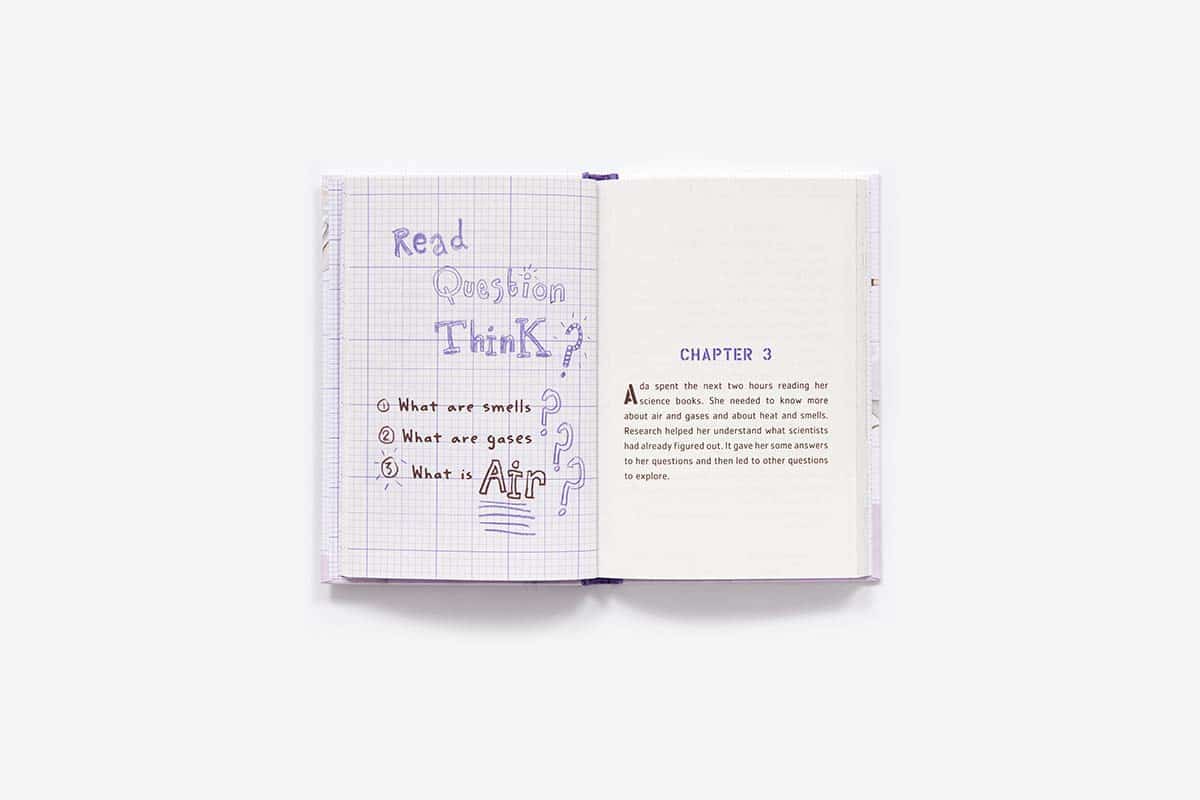 Read
Question
Think?
① What are smells?
② What are gases?
③ What is Air?
CHAPTER 3
Ada spent the next two hours reading her
science books. She needed to know more
about air and gases and about heat and smells.
Research helped her understand what scientists
had already figured out. It gave her some answers
to her questions and then led to other questions
to explore.